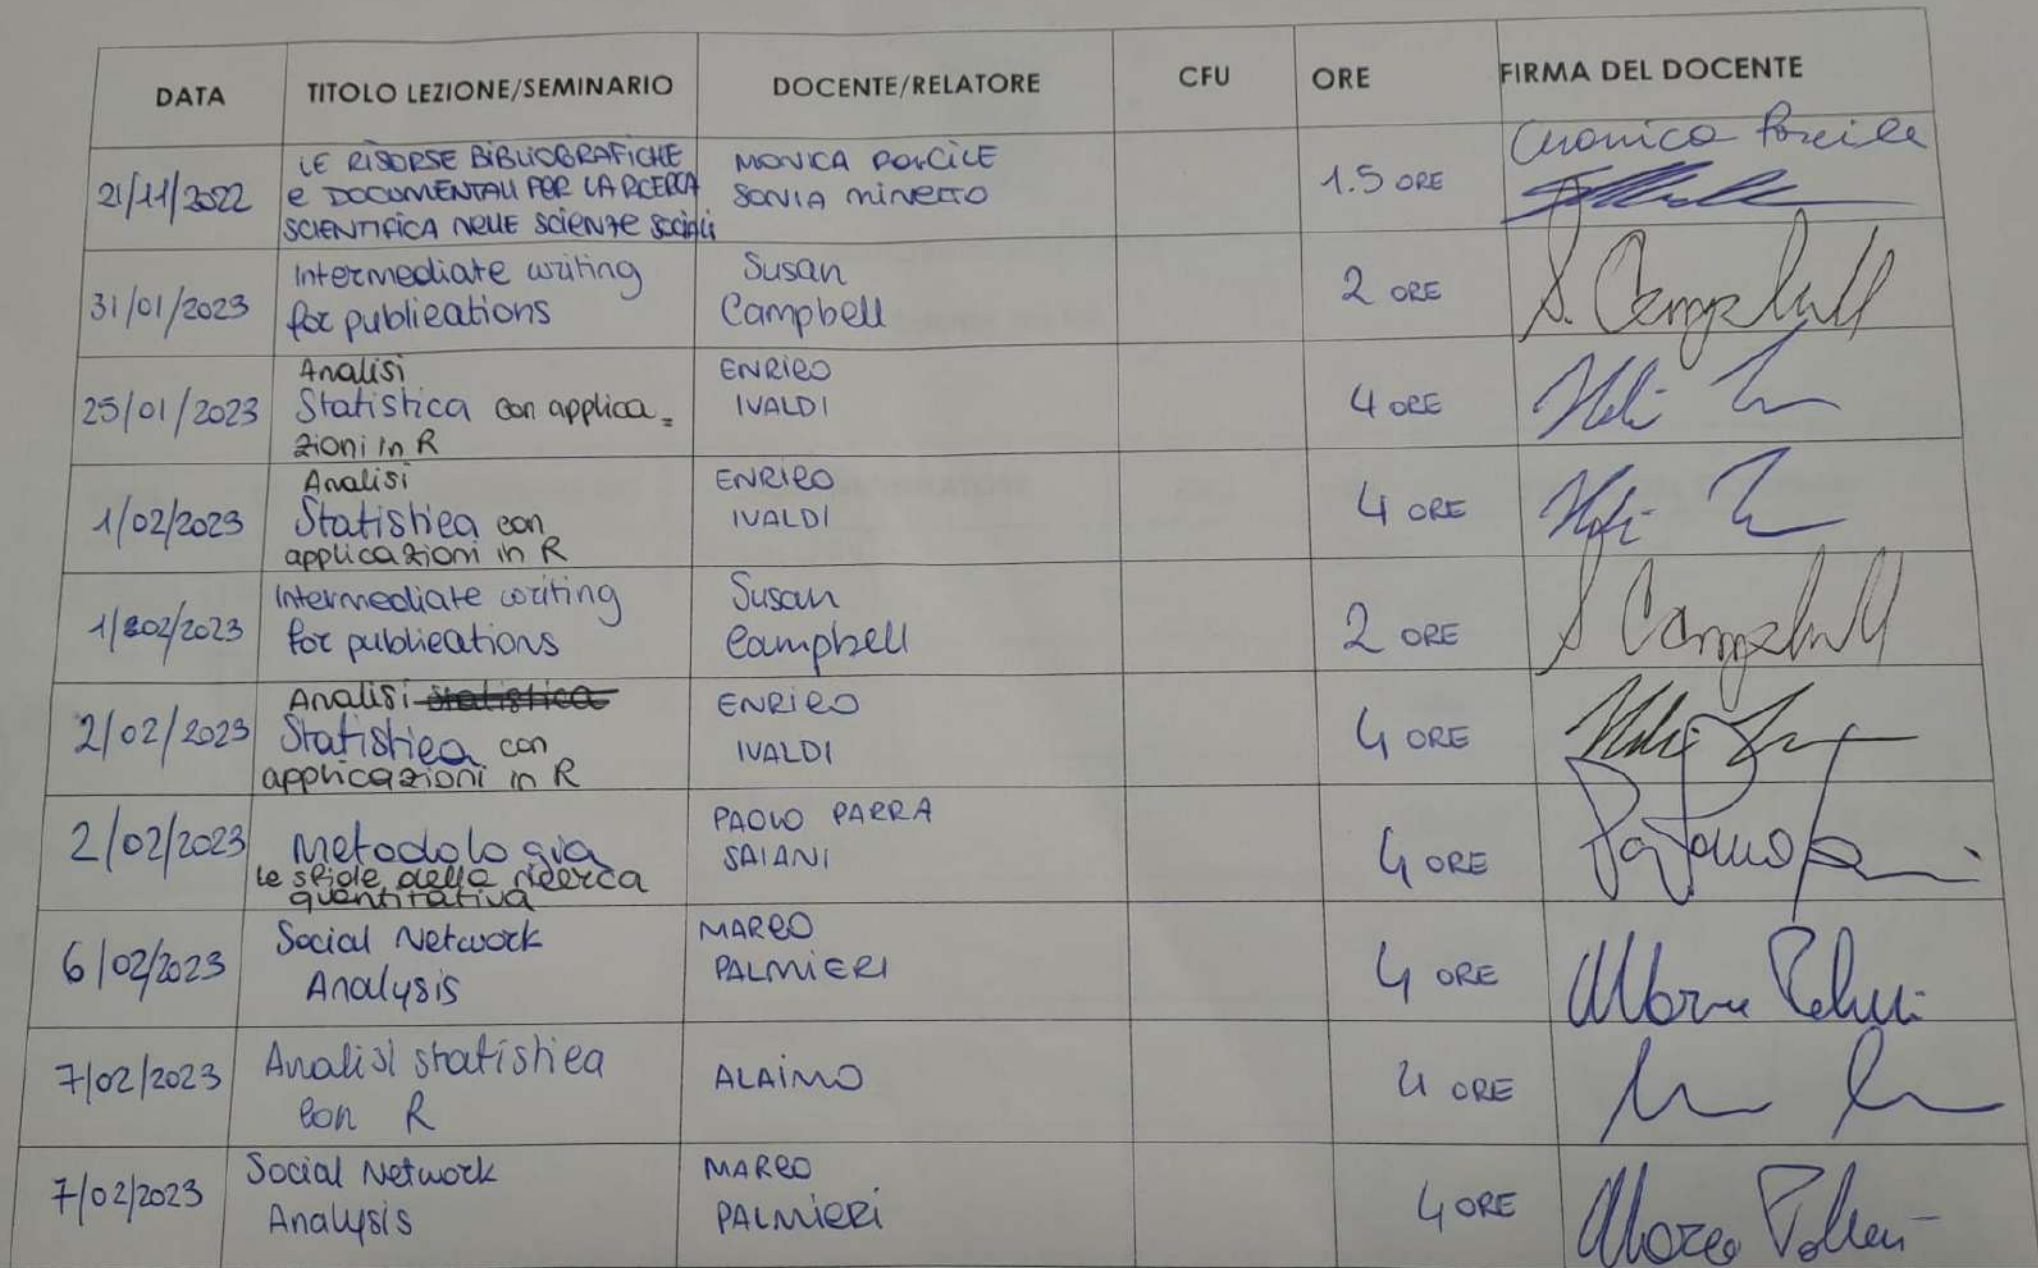 DATA TITOLO LEZIONE/SEMINARIO DOCENTE/RELATORE CFU ORE FIRMA DEL DOCENTE
21/11/2022
LE RISORSE BIBLIOGRAFICHE
e DOCUMENTALI PER LA RCERCA
SCIENTIFICA NELLE SCIENZE SOCIALI
MONICA PORCILE
SONIA MINETTO
1.5 ORE
Monica Porcile
31/01/2023
Intermediate writing
for publications
Susan
Campbell
2 ORE
S. Campbell
25/01/2023
Analisi
Statistica con applica=
zioni in R
ENRICO
IVALDI
4 ORE
1/02/2023
Analisi
Statistica con
applicazioni in R
ENRICO
IVALDI
4 ORE
1/02/2023
Intermediate writing
for publications
Susan
Campbell
2 ORE
S Campbell
2/02/2023
Analisi statistica
Statistica con
applicazioni in R
ENRICO
IVALDI
4 ORE
2/02/2023
Metodologia
le sfide della ricerca
quantitativa
PAOLO PARRA
SAIANI
4 ORE
6/02/2023
Social Network
Analysis
MARCO
PALMIERI
4 ORE
Marco Palmieri
7/02/2023
Analisi statistica
con R
ALAIMO
4 ORE
7/02/2023
Social Network
Analysis
MARCO
PALMIERI
4 ORE
Marco Palmieri